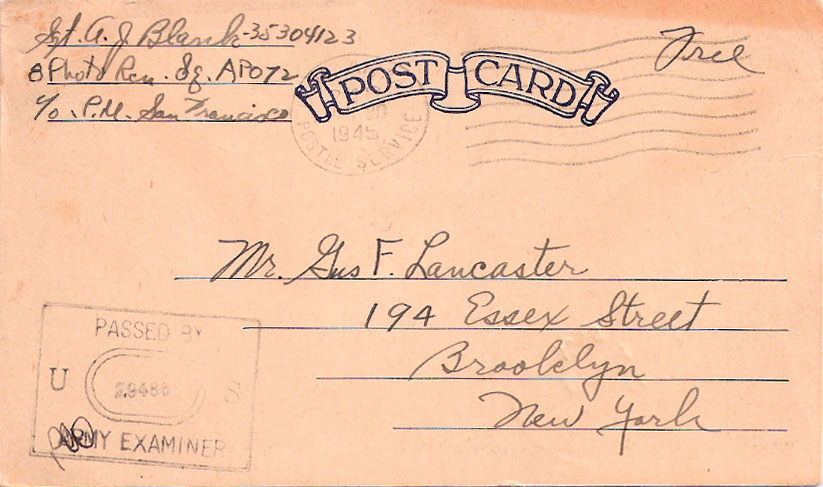 Sgt. A. J. Blank-35304123
8 Photo Rcn. Sq. APO 72
c/o P.M. San Francisco
Free
POST CARD
1945
POSTAL SERVICE
Mr. Gus F. Lancaster
194 Essex Street
Brooklyn
New York
PASSED BY
U S
29486
ARMY EXAMINER